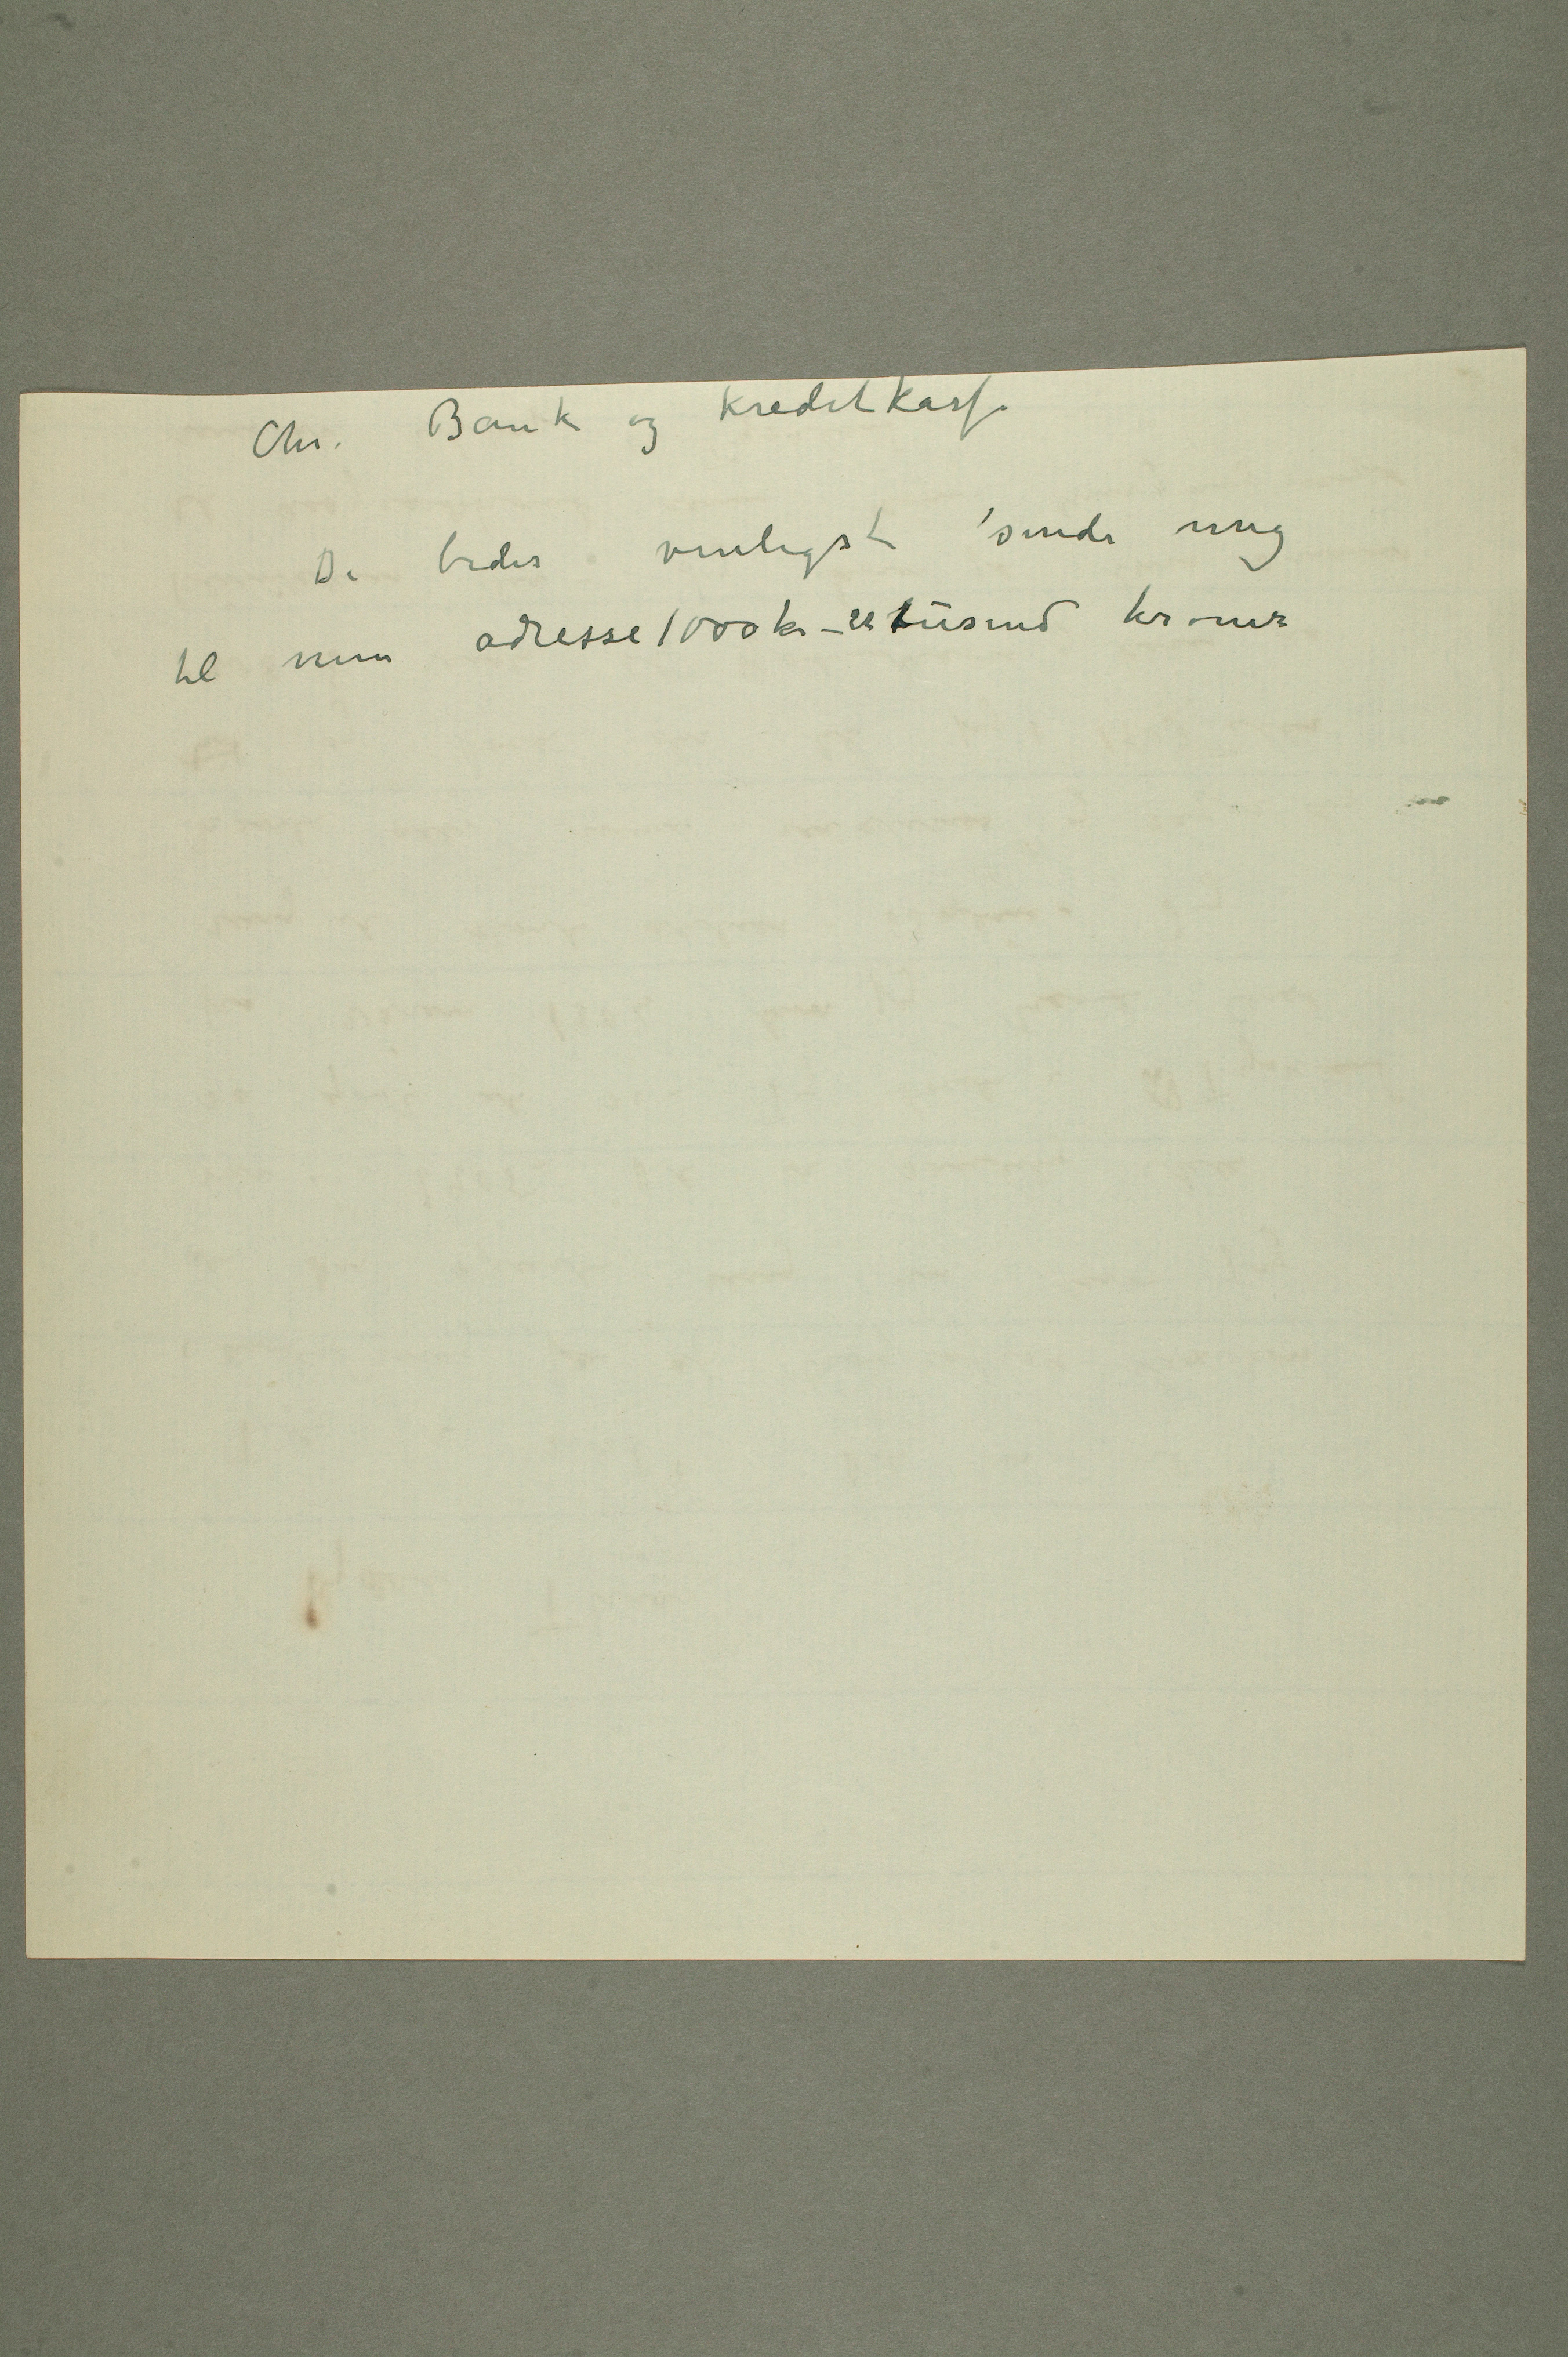 Chr. Bank og Kreditkasse
De bedes venligst sende mig
til min adresse 1000 kr – et tusend kroner